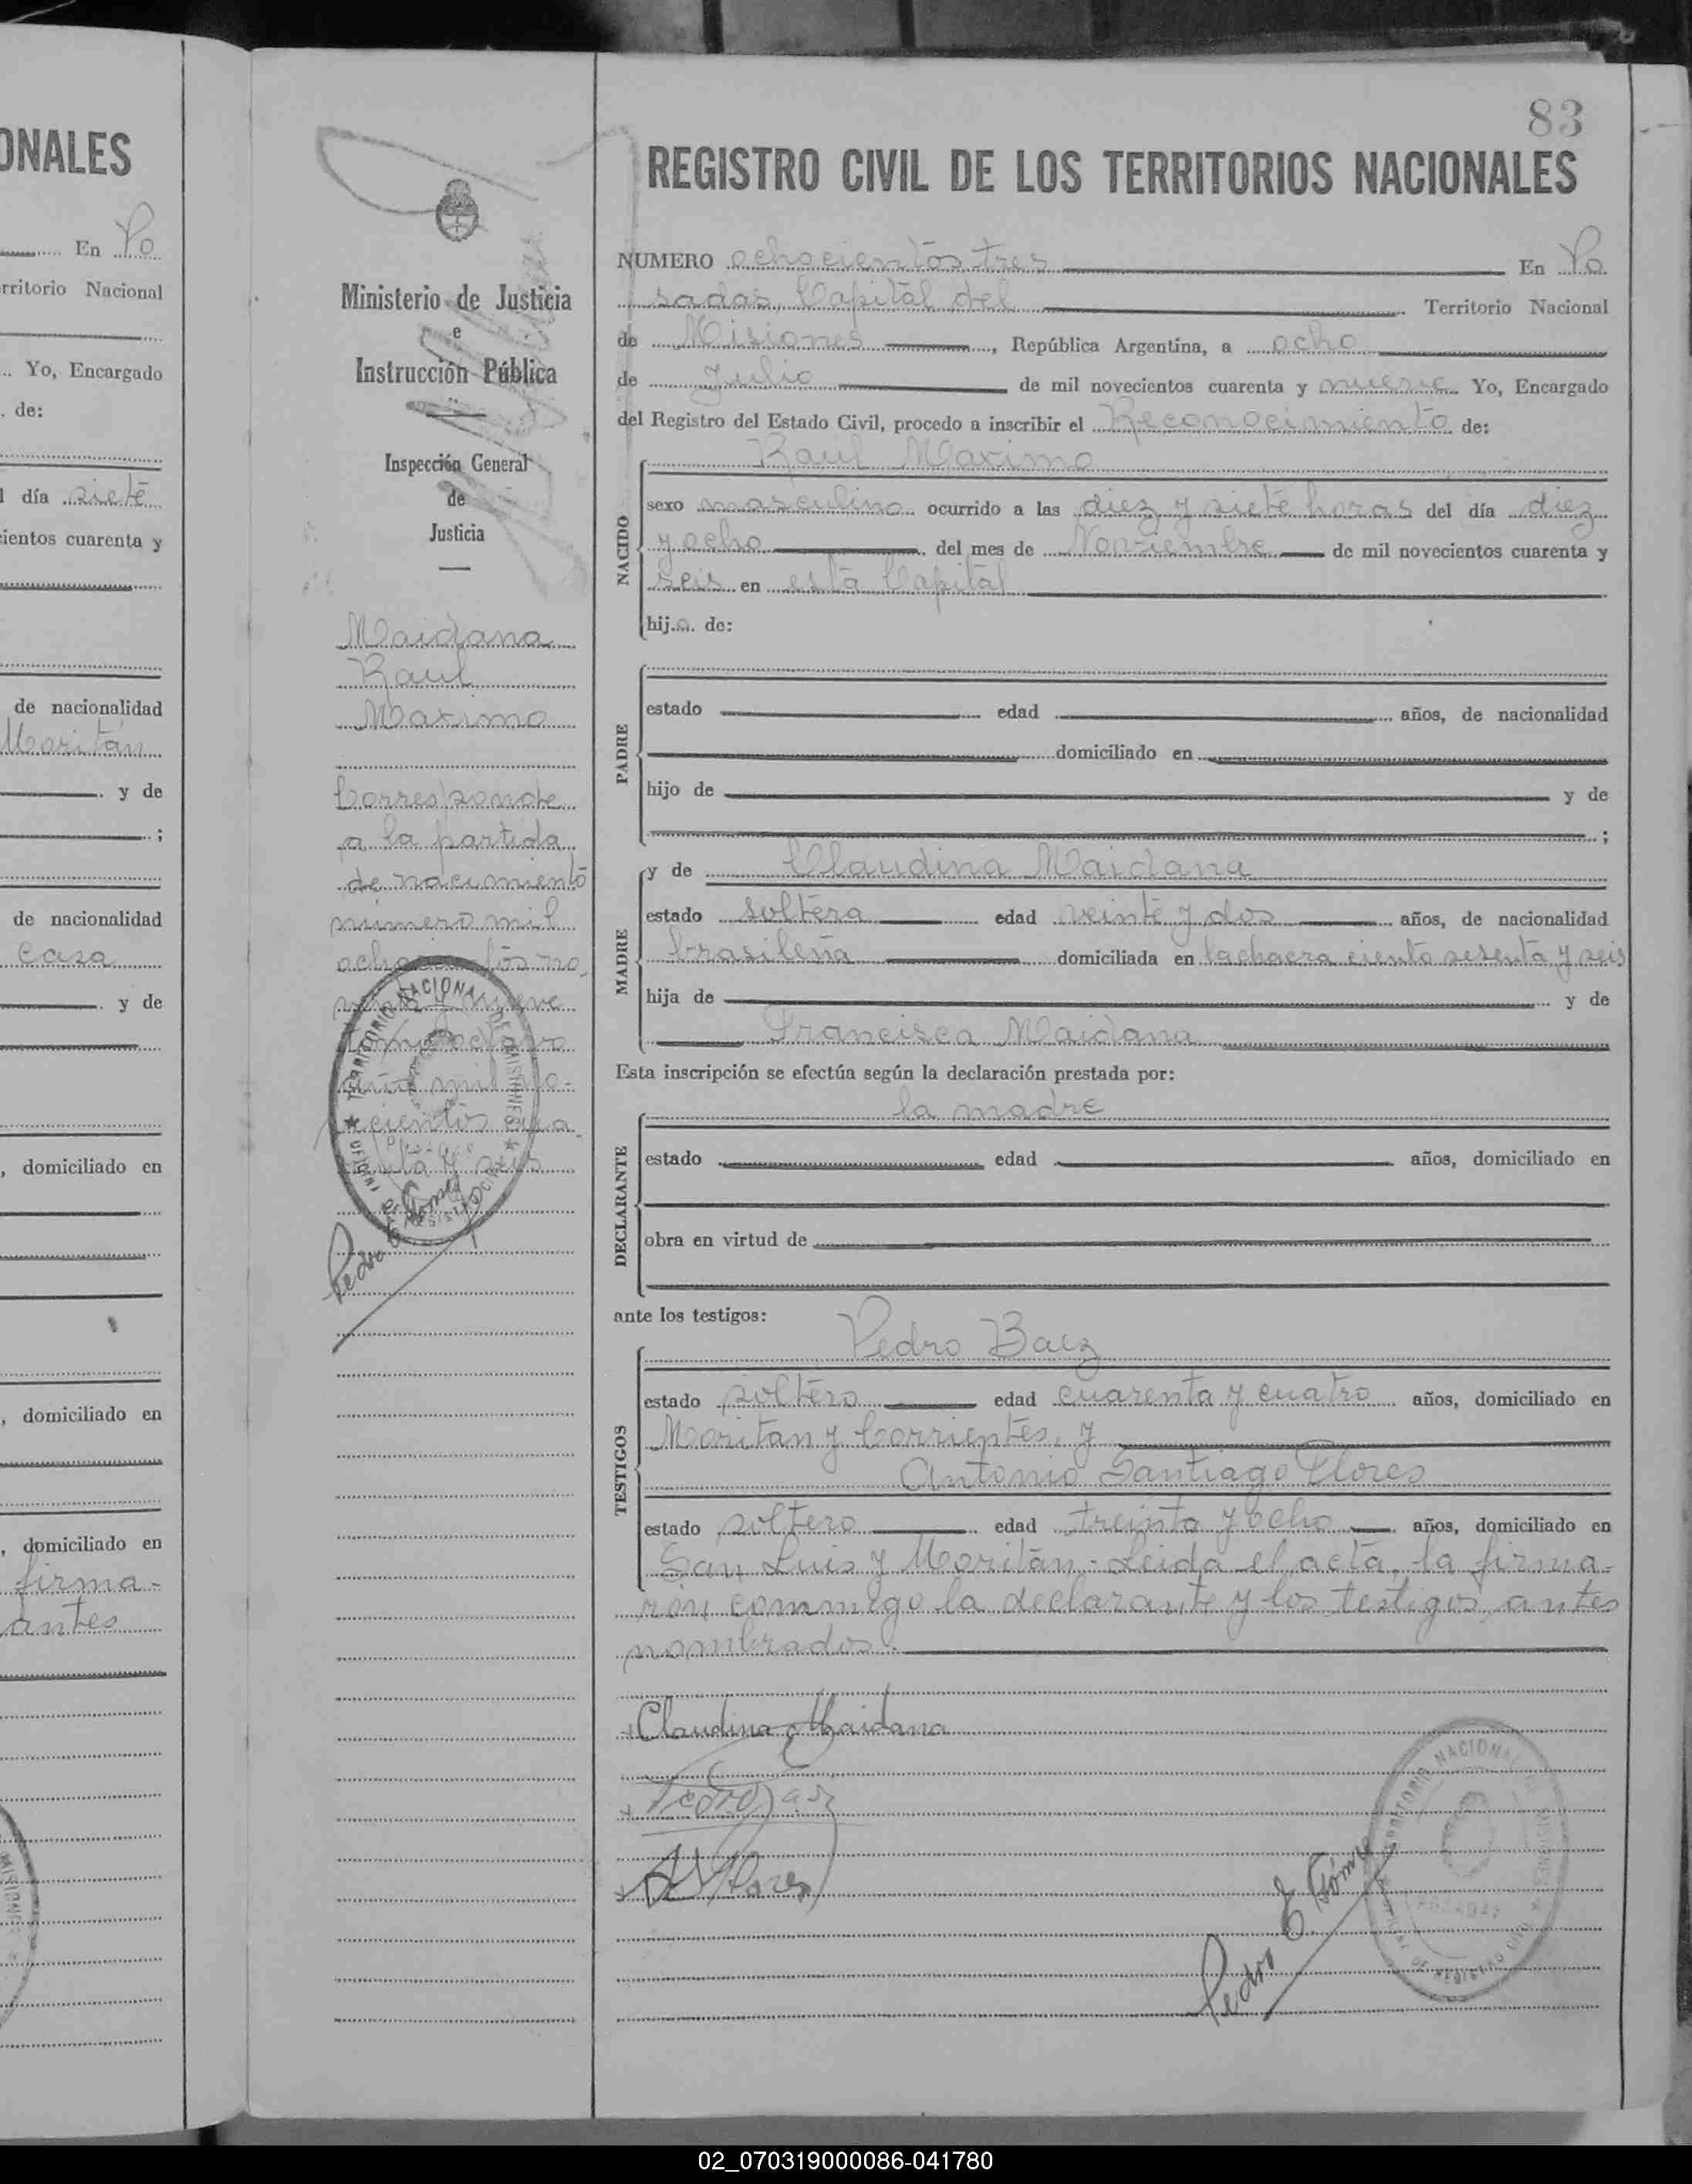 ONALES
En Po
rritorio Nacional
Yo, Encargado
de:
l día siete
ientos cuarenta y
de nacionalidad
Moritán
y de
;
de nacionalidad
casa
y de
, domiciliado en
, domiciliado en
, domiciliado en
firma-
antes
Ministerio de Justicia
e
Instrucción Pública
Inspección General
de
Justicia
Maidana
Raul
Maximo
Corresponde
a la partida
de nacimiento
número mil
ochocientos no
venta y nueve
tomo octavo
año mil no-
vecientos cua
renta y seis
Pedro E. Gómez
TERRITORIO NACIONAL DE MISIONES
83
REGISTRO CIVIL DE LOS TERRITORIOS NACIONALES
NUMERO ochocientos tres En Po
sadas, Capital del Territorio Nacional
de Misiones, República Argentina, a ocho
de Julio de mil novecientos cuarenta y nueve Yo, Encargado
del Registro del Estado Civil, procedo a inscribir el Reconocimiento de:
Raul Maximo
NACIDO
sexo masculino ocurrido a las diez y siete horas del día diez
y ocho del mes de Noviembre de mil novecientos cuarenta y
seis en esta Capital
hijo de:
PADRE
estado edad años, de nacionalidad
domiciliado en
hijo de y de
;
MADRE
y de Claudina Maidana
estado soltera edad veinte y dos años, de nacionalidad
brasileña domiciliada en lachacra ciento sesenta y seis
hija de y de
Francisca Maidana
Esta inscripción se efectúa según la declaración prestada por:
la madre
DECLARANTE
estado edad años, domiciliado en
obra en virtud de
ante los testigos:
Pedro Baez
TESTIGOS
estado soltero edad cuarenta y cuatro años, domiciliado en
Moritan y Corrientes, y
Antonio Santiago Flores
estado soltero edad treinta y ocho años, domiciliado en
San Luis y Moritán.- Leida el acta, la firma-
ron conmigo la declarante y los testigos antes
nombrados.
Claudina Maidana
Pedro Baez
A S Flores
Pedro E. Gómez
TERRITORIO NACIONAL DE MISIONES
POSADAS
02_070319000086-041780